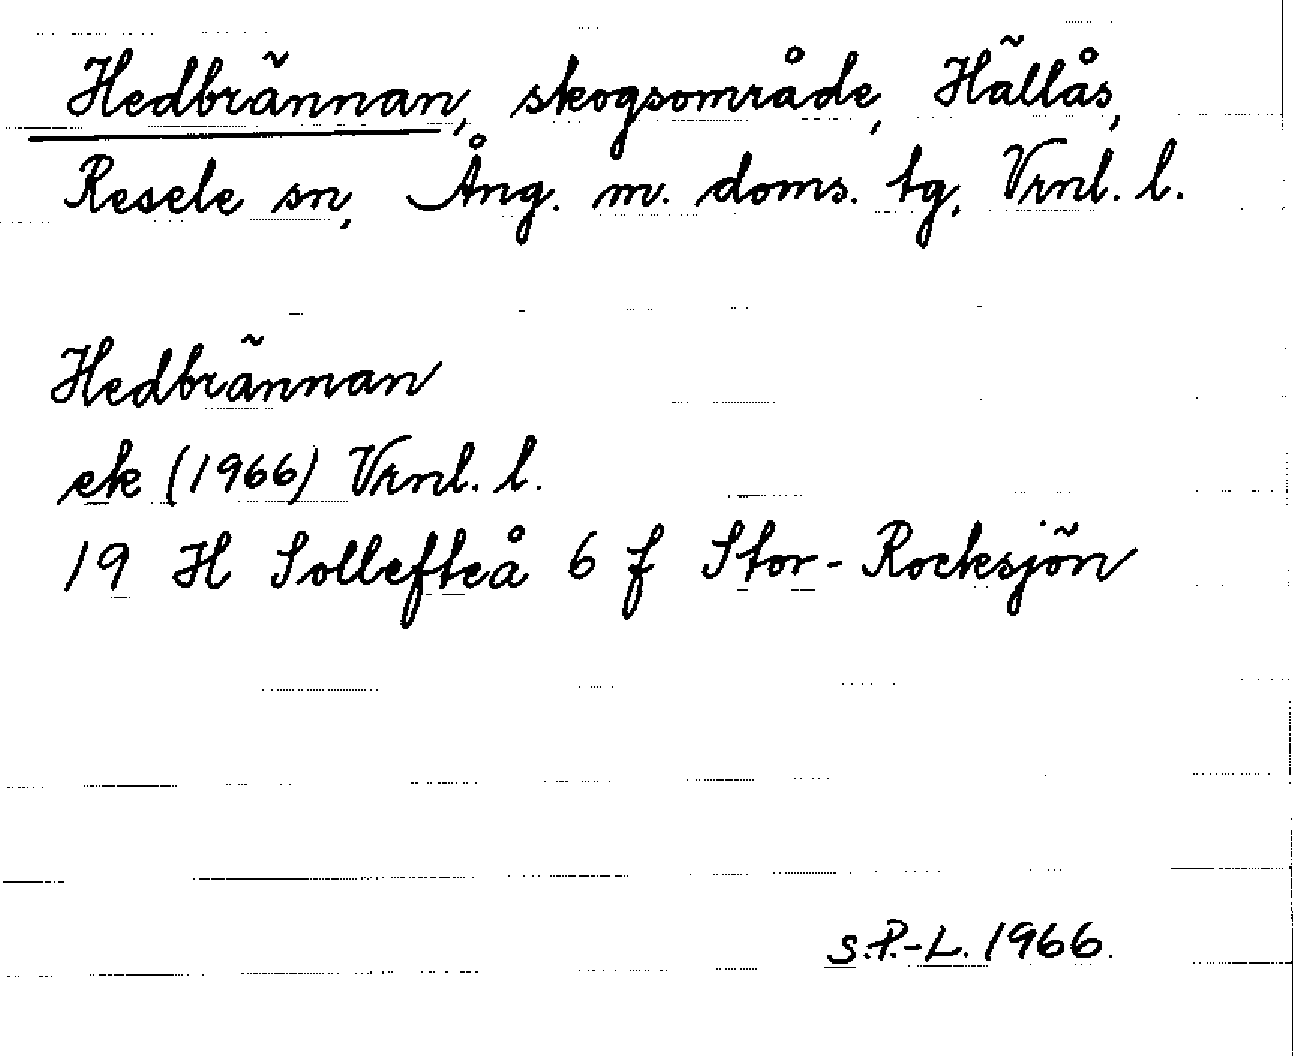 Hedbrännan, skogsområde, Hällås,
Resele sn, Ång. m. doms. tg, Vrnl. l.
Hedbrännan
ek (1966) Vrnl. l.
19 H Sollefteå 6 f Stor-Rocksjön
S.P.-L. 1966.